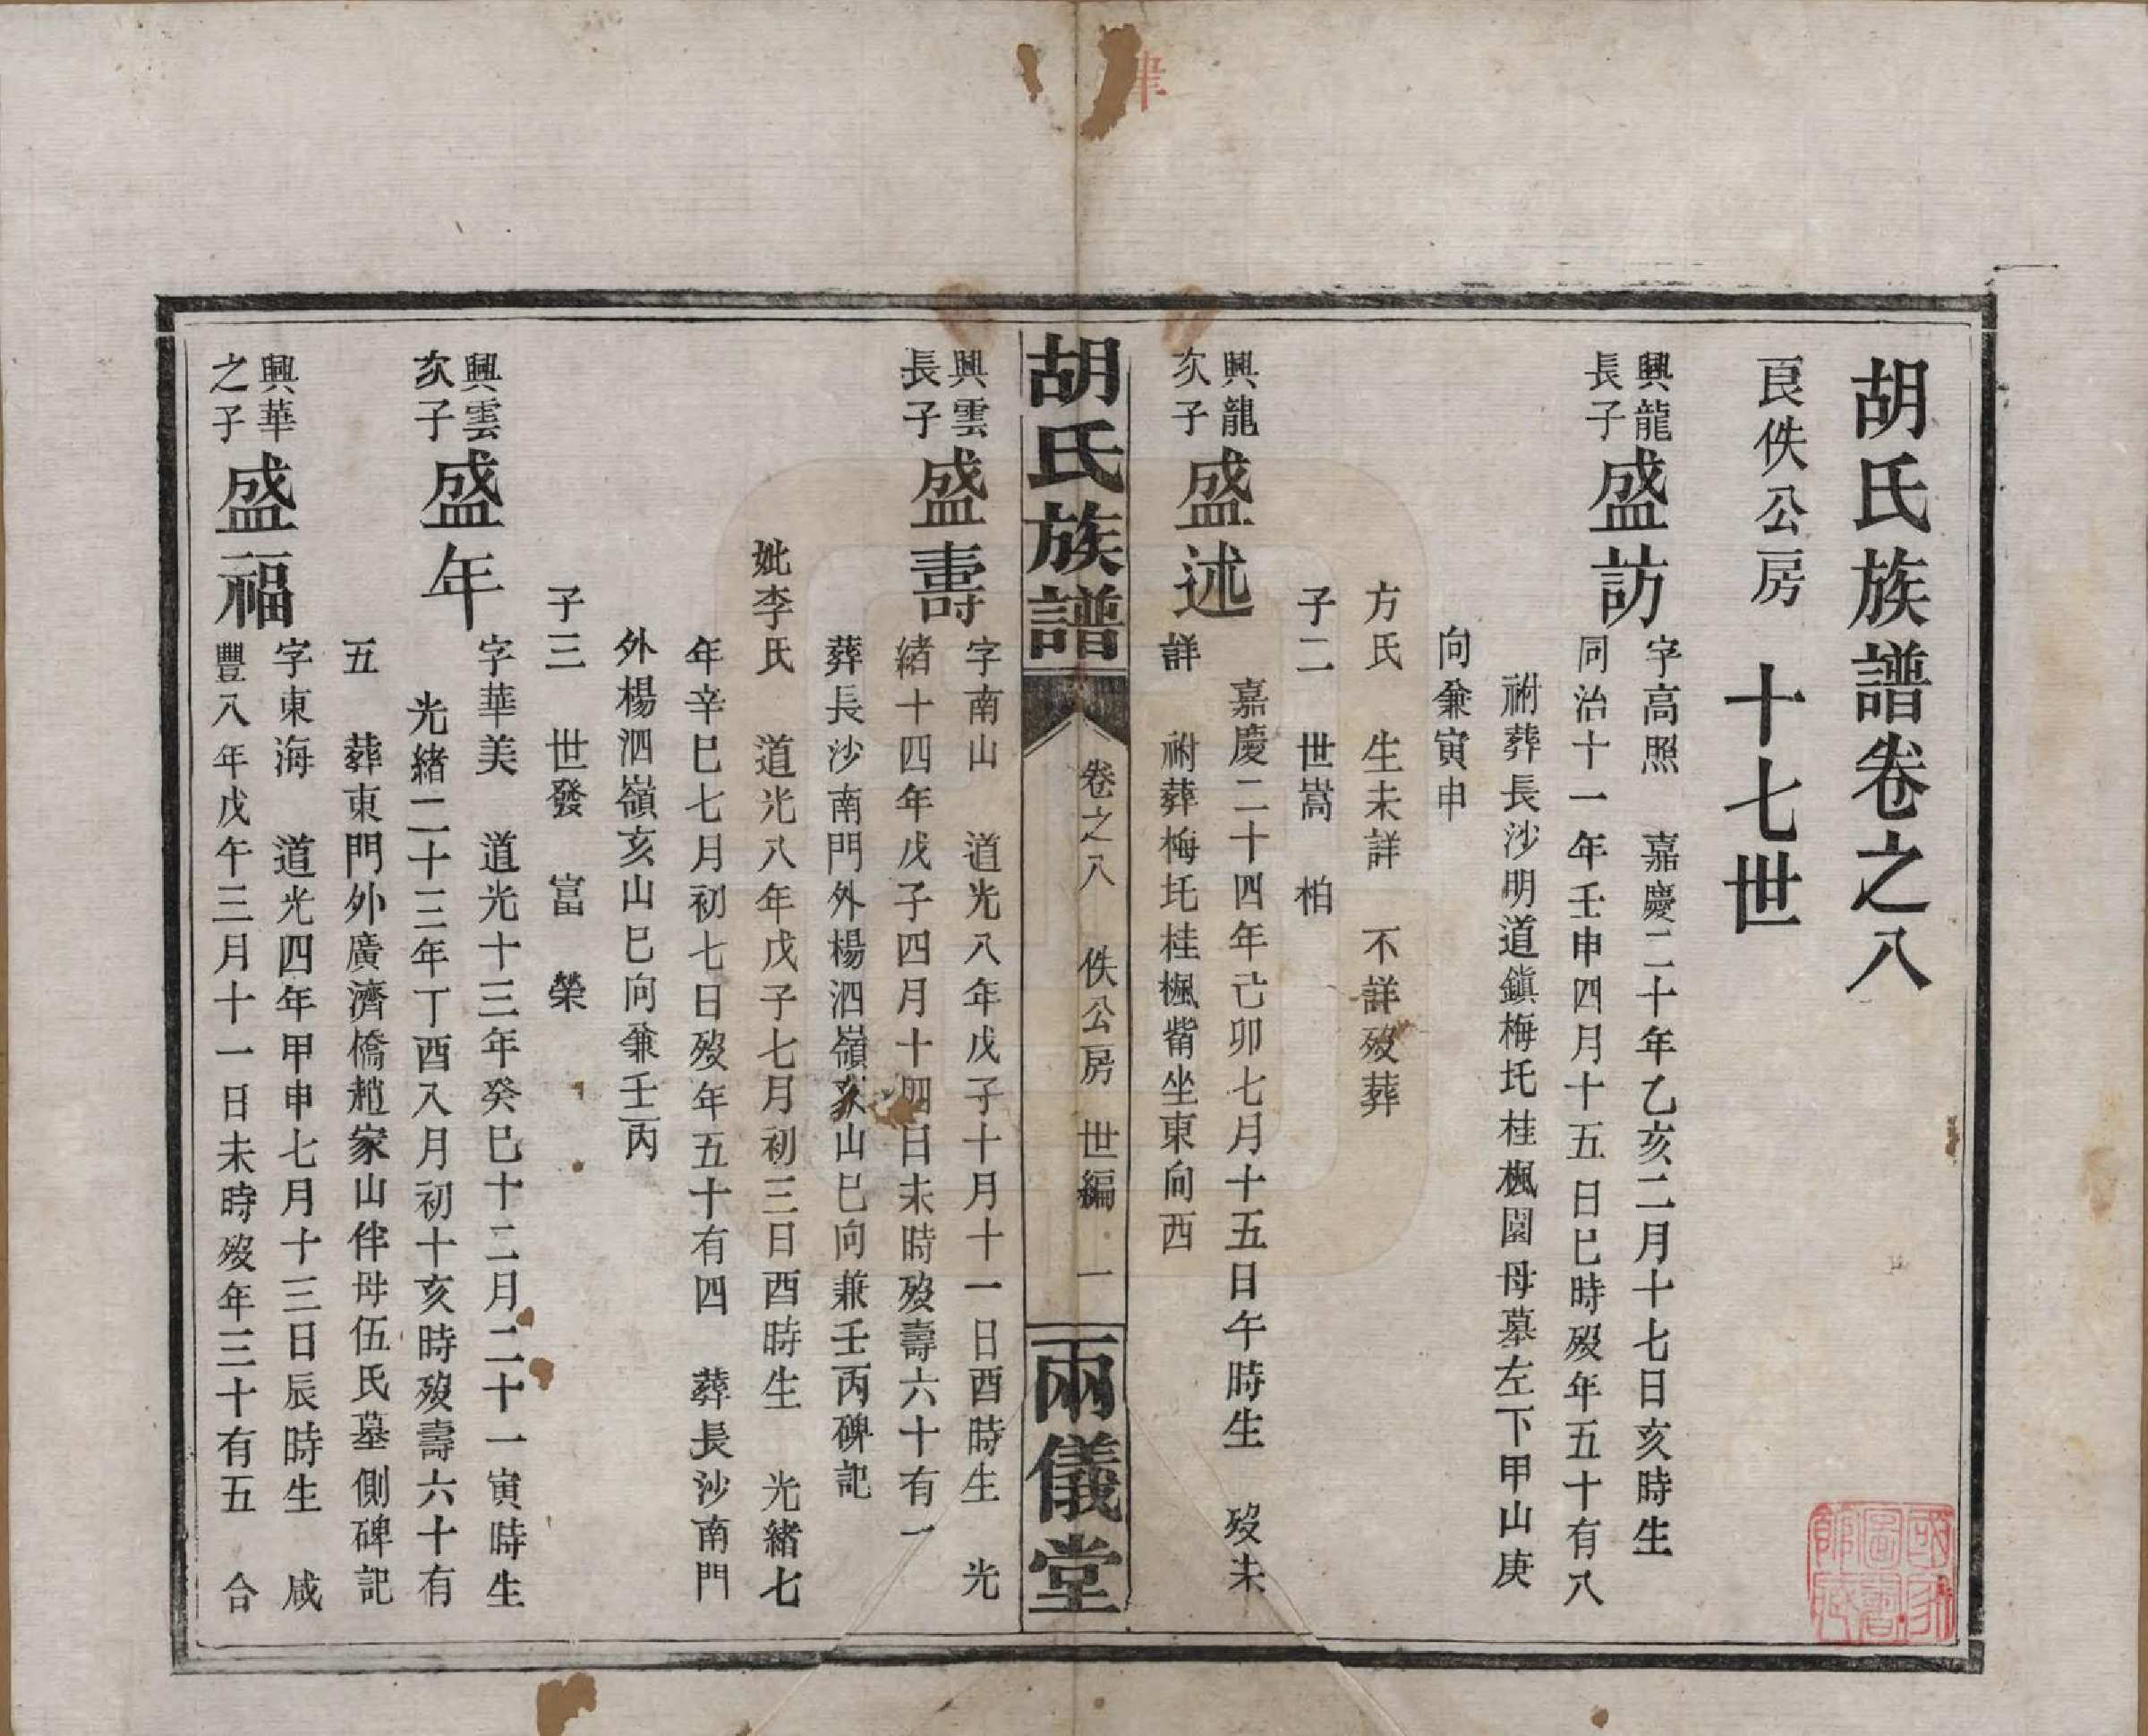 胡氏族譜卷之八
良佚公房　十七世
興龍長子　盛訪　字高照　嘉慶二十年乙亥二月十七日亥時生
同治十一年壬申四月十五日巳時歿年五十有八
祔葬長沙明道鎭梅圫桂楓園母墓左下甲山庚
向兼寅申
方氏　生未詳　不詳歿葬
子二　世嵩　柏
興龍次子　盛述　嘉慶二十四年己卯七月十五日午時生　歿未
詳　祔葬梅圫桂楓觜坐東向西
胡氏族譜　卷之八　佚公房　世編　一　兩儀堂
興雲長子　盛壽　字南山　道光八年戊子十月十一日酉時生　光
緒十四年戊子四月十四日未時歿壽六十有一
葬長沙南門外楊泗嶺亥山巳向兼壬丙碑記
妣李氏　道光八年戊子七月初三日酉時生　光緒七
年辛巳七月初七日歿年五十有四　葬長沙南門
外楊泗嶺亥山巳向兼壬丙
子三　世發　富　榮
興雲次子　盛年　字華美　道光十三年癸巳十二月二十一寅時生
光緒二十三年丁酉八月初十亥時歿壽六十有
五　葬東門外廣濟橋趙家山伴母伍氏墓側碑記
興華之子　盛福　字東海　道光四年甲申七月十三日辰時生　咸
豐八年戊午三月十一日未時歿年三十有五　合
國家圖書館藏